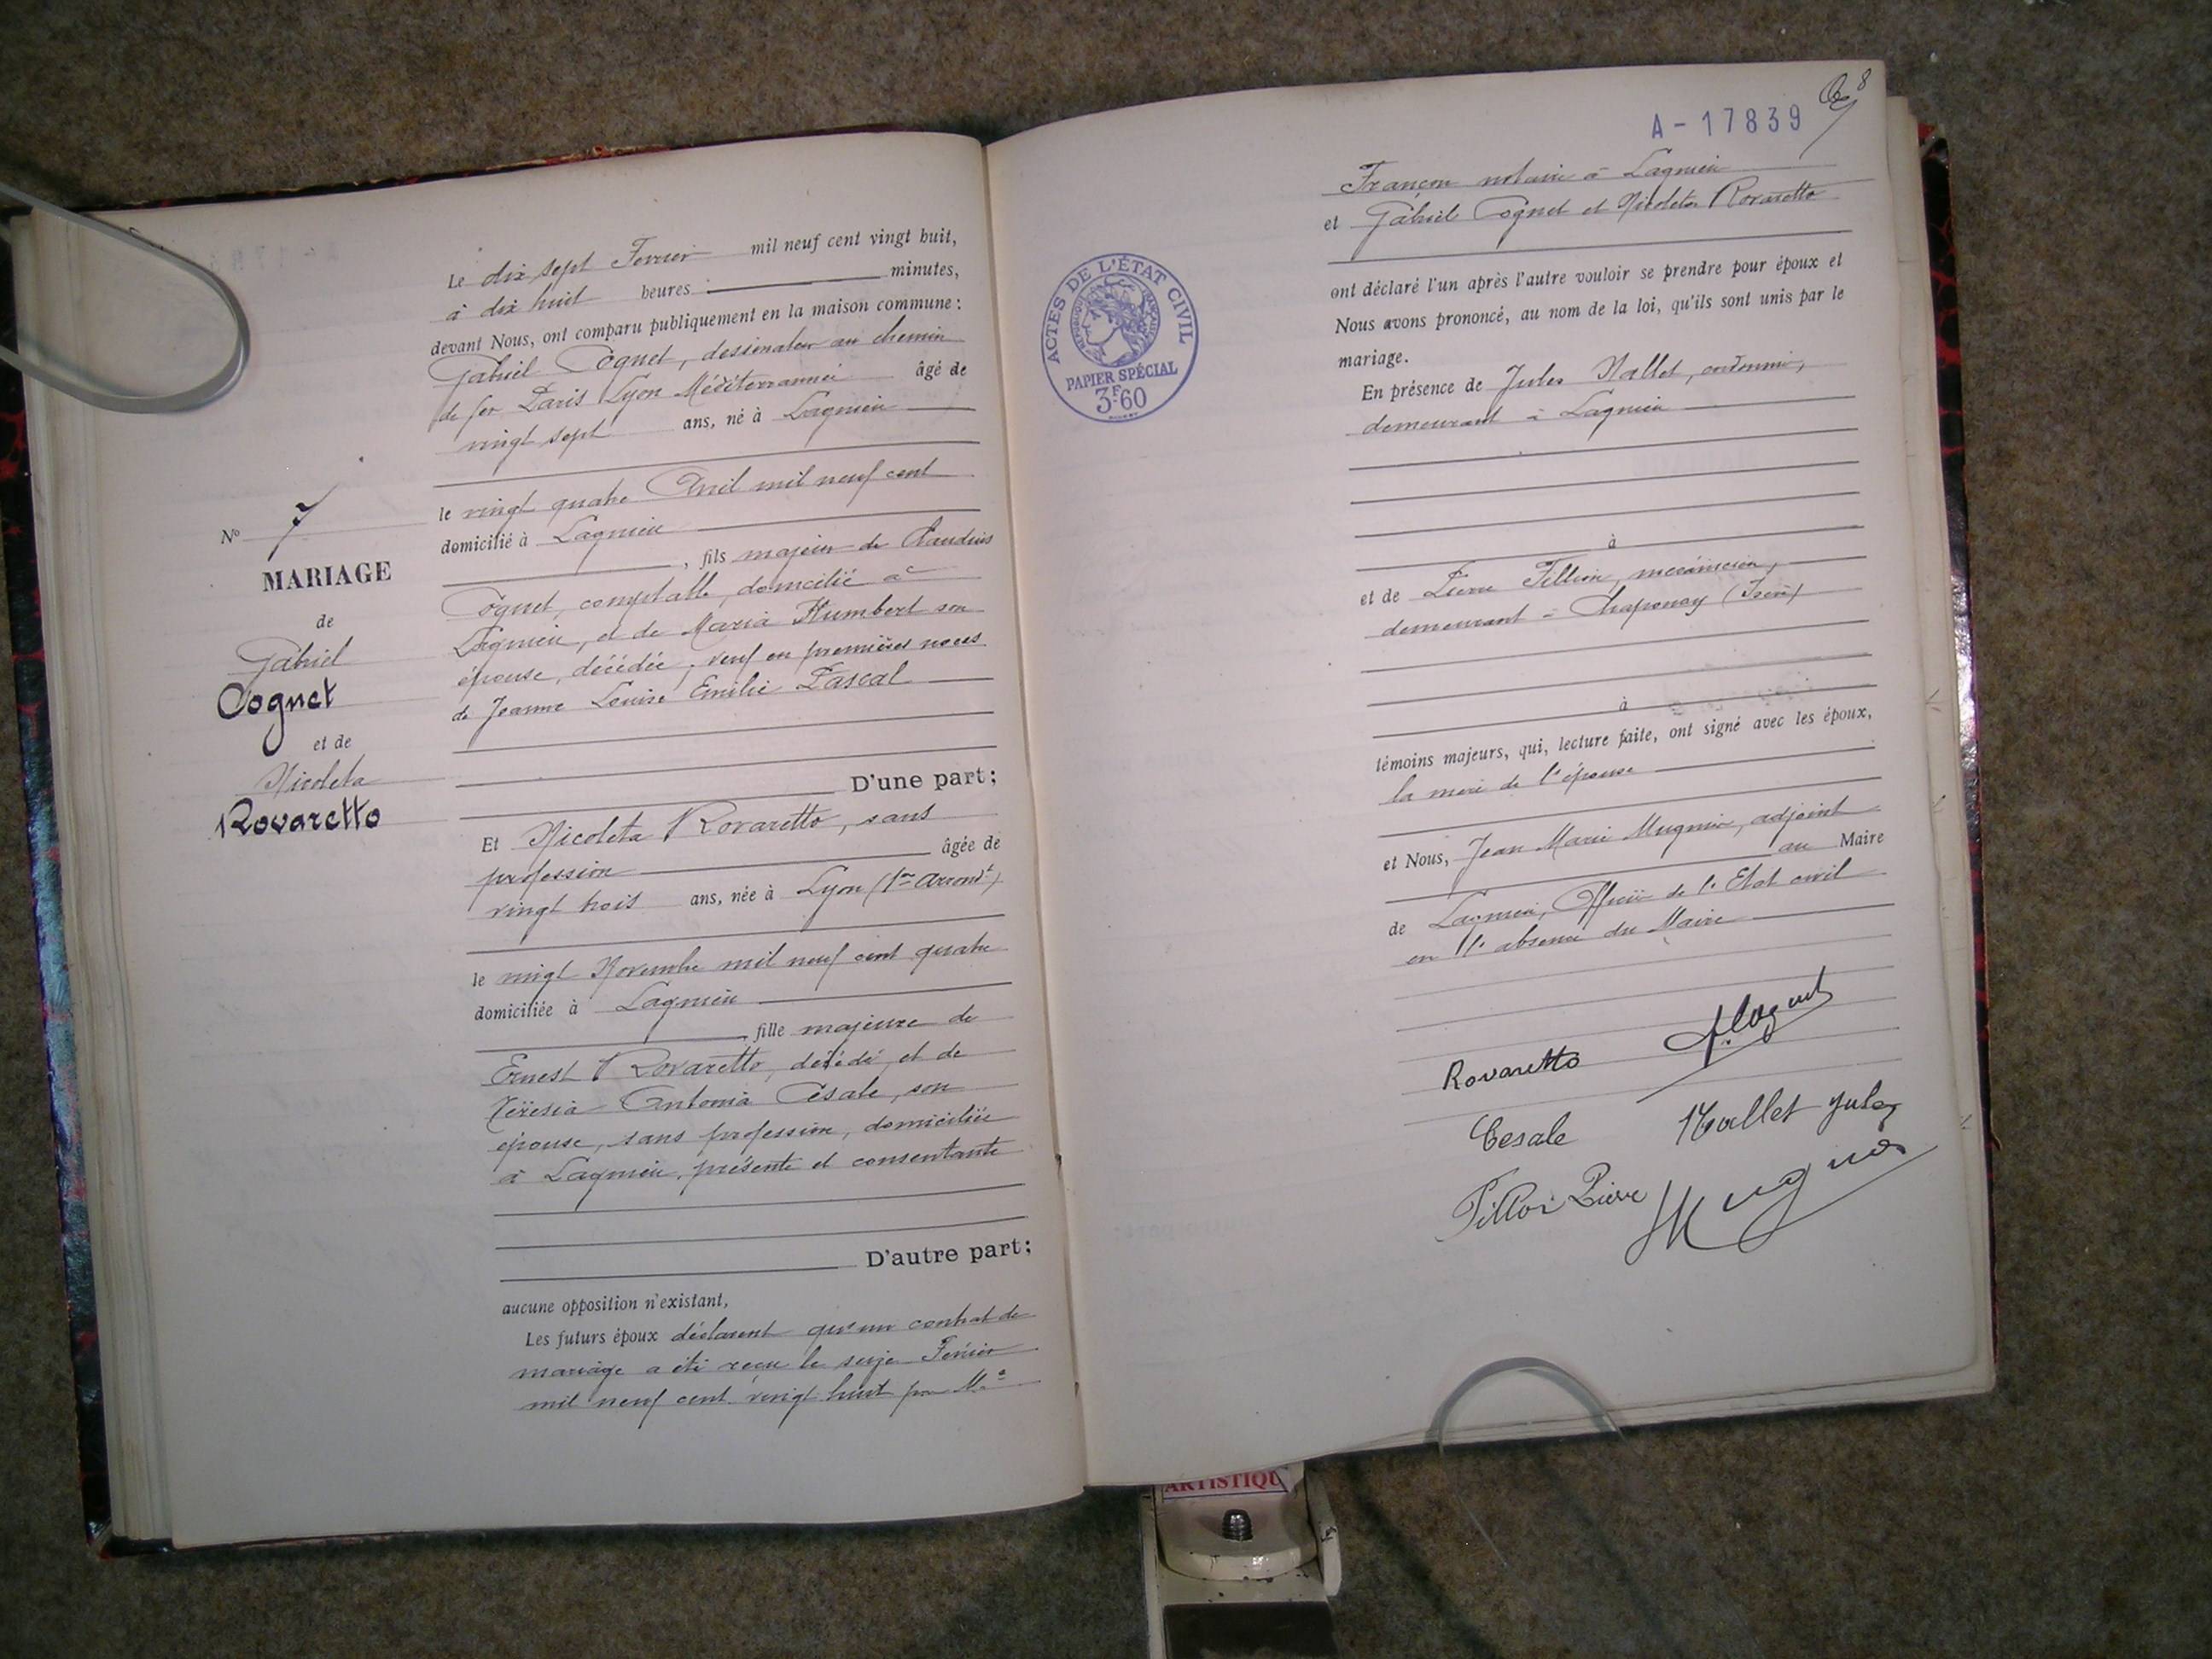 Le dix sept Fevrier mil neuf cent vingt huit,
à dix huit heures minutes,
devant Nous, ont comparu publiquement en la maison commune :
Gabriel Cognet, dessinateur au chemin
de fer Paris Lyon Méditerrannée âgé de
vingt sept ans, né à Lagnieu
le vingt quatre Avril mil neuf cent
domicilié à Lagnieu
, fils majeur de Claudius
Cognet, comptable, domicilié à
Lagnieu, et de Maria Humbert son
épouse, décédée, veuf en premières noces
de Jeanne Louise Emilie Pascal
D'une part;
Et Nicoleta Rovaretto, sans
profession âgée de
vingt trois ans, née à Lyon (1er Arrondt)
le vingt Novembre mil neuf cent quatre
domiciliée à Lagnieu
, fille majeure de
Ernest Rovaretto, décédé, et de
Térésia Antonia Césale, son
épouse, sans profession, domiciliée
à Lagnieu, présente et consentante
D'autre part;
aucune opposition n'existant,
Les futurs époux déclarent qu'un contrat de
mariage a été reçu le seize Février
mil neuf cent vingt huit par Me
No 7
MARIAGE
de
Gabriel
Cognet
et de
Nicoleta
Rovaretto
A-17839
8
Françon notaire à Lagnieu
et Gabriel Cognet et Nicoleta Rovaretto
ont déclaré l'un après l'autre vouloir se prendre pour époux et
Nous avons prononcé, au nom de la loi, qu'ils sont unis par le
mariage.
En présence de Jules Mallet,
demeurant à Lagnieu
à
et de Pierre Fillion, mécanicien,
demeurant à Chaponay (Isère)
à
témoins majeurs, qui, lecture faite, ont signé avec les époux,
la mère de l'épouse
et Nous, Jean Marie Mugnier, adjoint
au Maire
de Lagnieu, Officier de l'Etat civil
en l'absence du Maire
Rovaretto Cognet
Cesale Mallet Jules
Pierre
ACTES DE L'ÉTAT CIVIL
RÉPUBLIQUE FRANÇAISE
PAPIER SPÉCIAL
3F60
ARTISTIQU